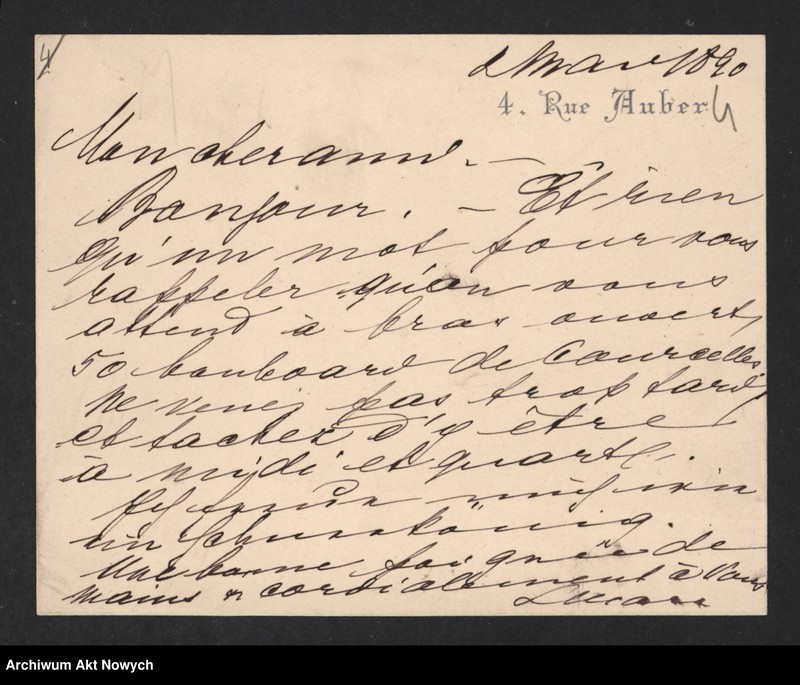 4
2 Mars 1890
4. Rue Auber
Mon cher ami. —
Bonjour. — Et rien
qu'un mot pour vous
rappeler qu'on vous
attend à bras ouverts
50 boulevard de Courcelles
ne venez pas trop tard,
et tachez d'y être
à midi et quart.
Ich freue mich wie
ein Schneekönig.
Une bonne poignée de
mains & cordialement à vous
Archiwum Akt Nowych